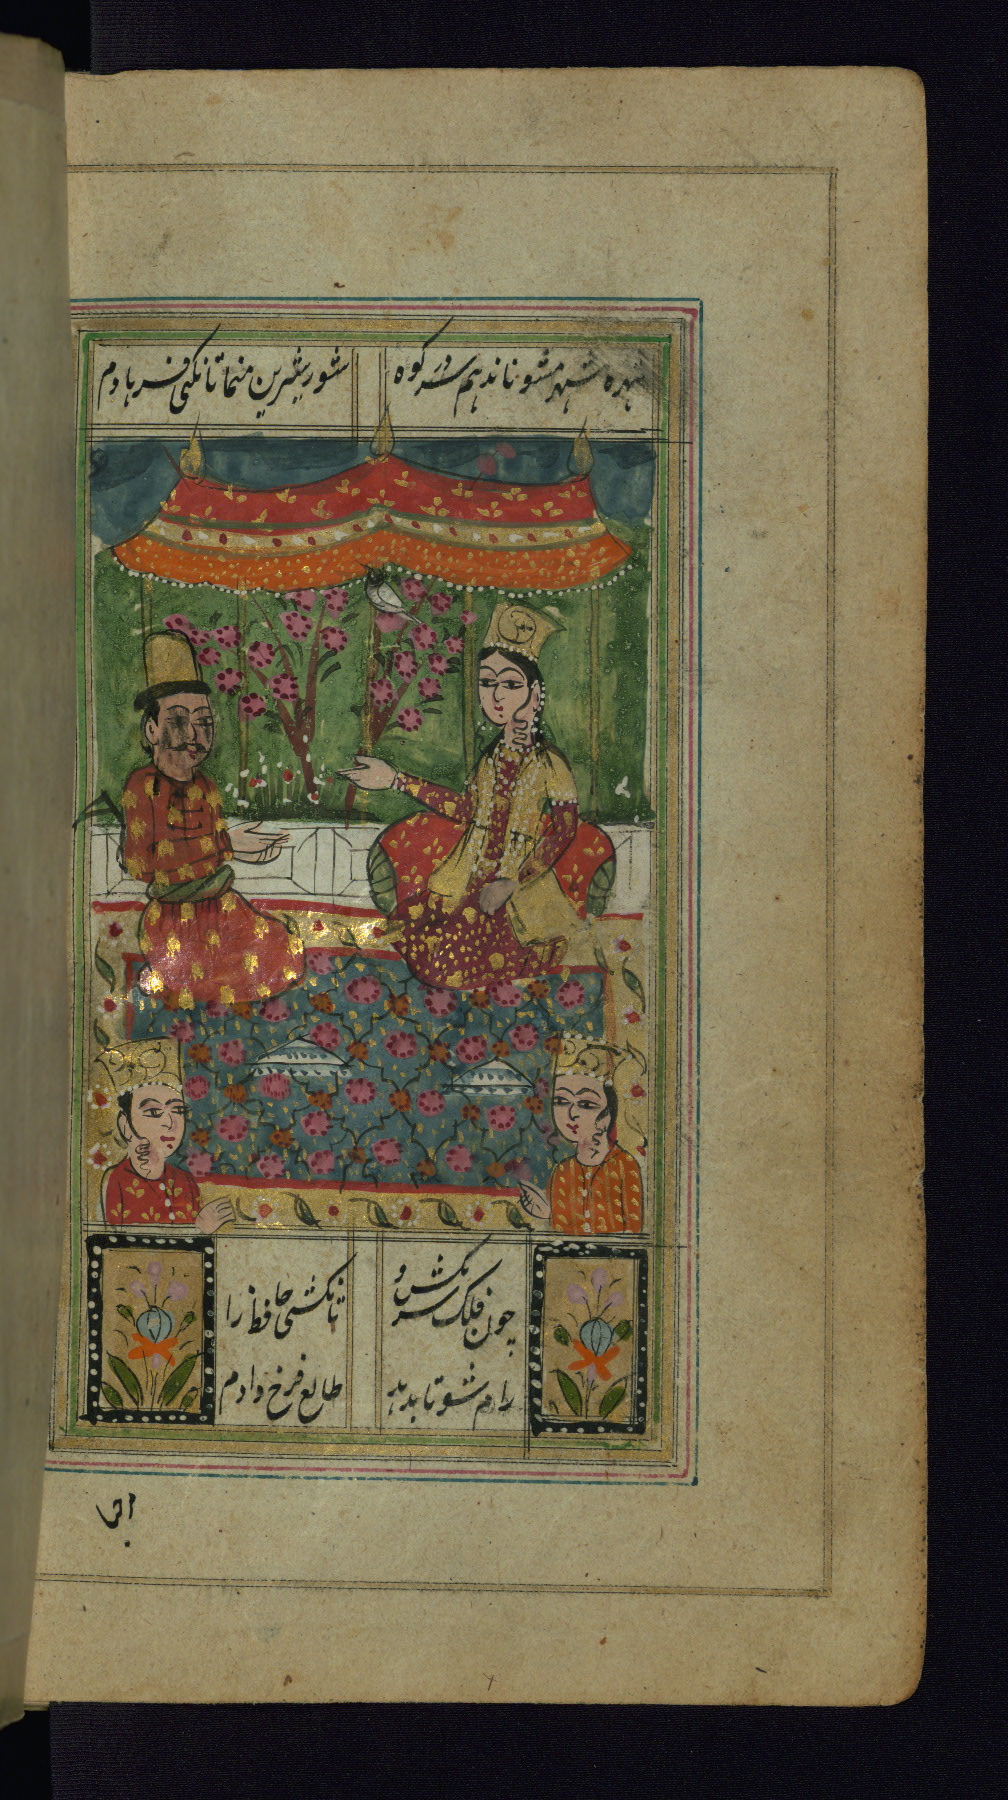 شهره شهر مشو تا ننهم سر در کوه
شور شیرین منما تا نکنی فرهادم
چون فلک سرکش و
تا نکشی حافظ را
رام شو تا بدهد
طالع فرخ دادم